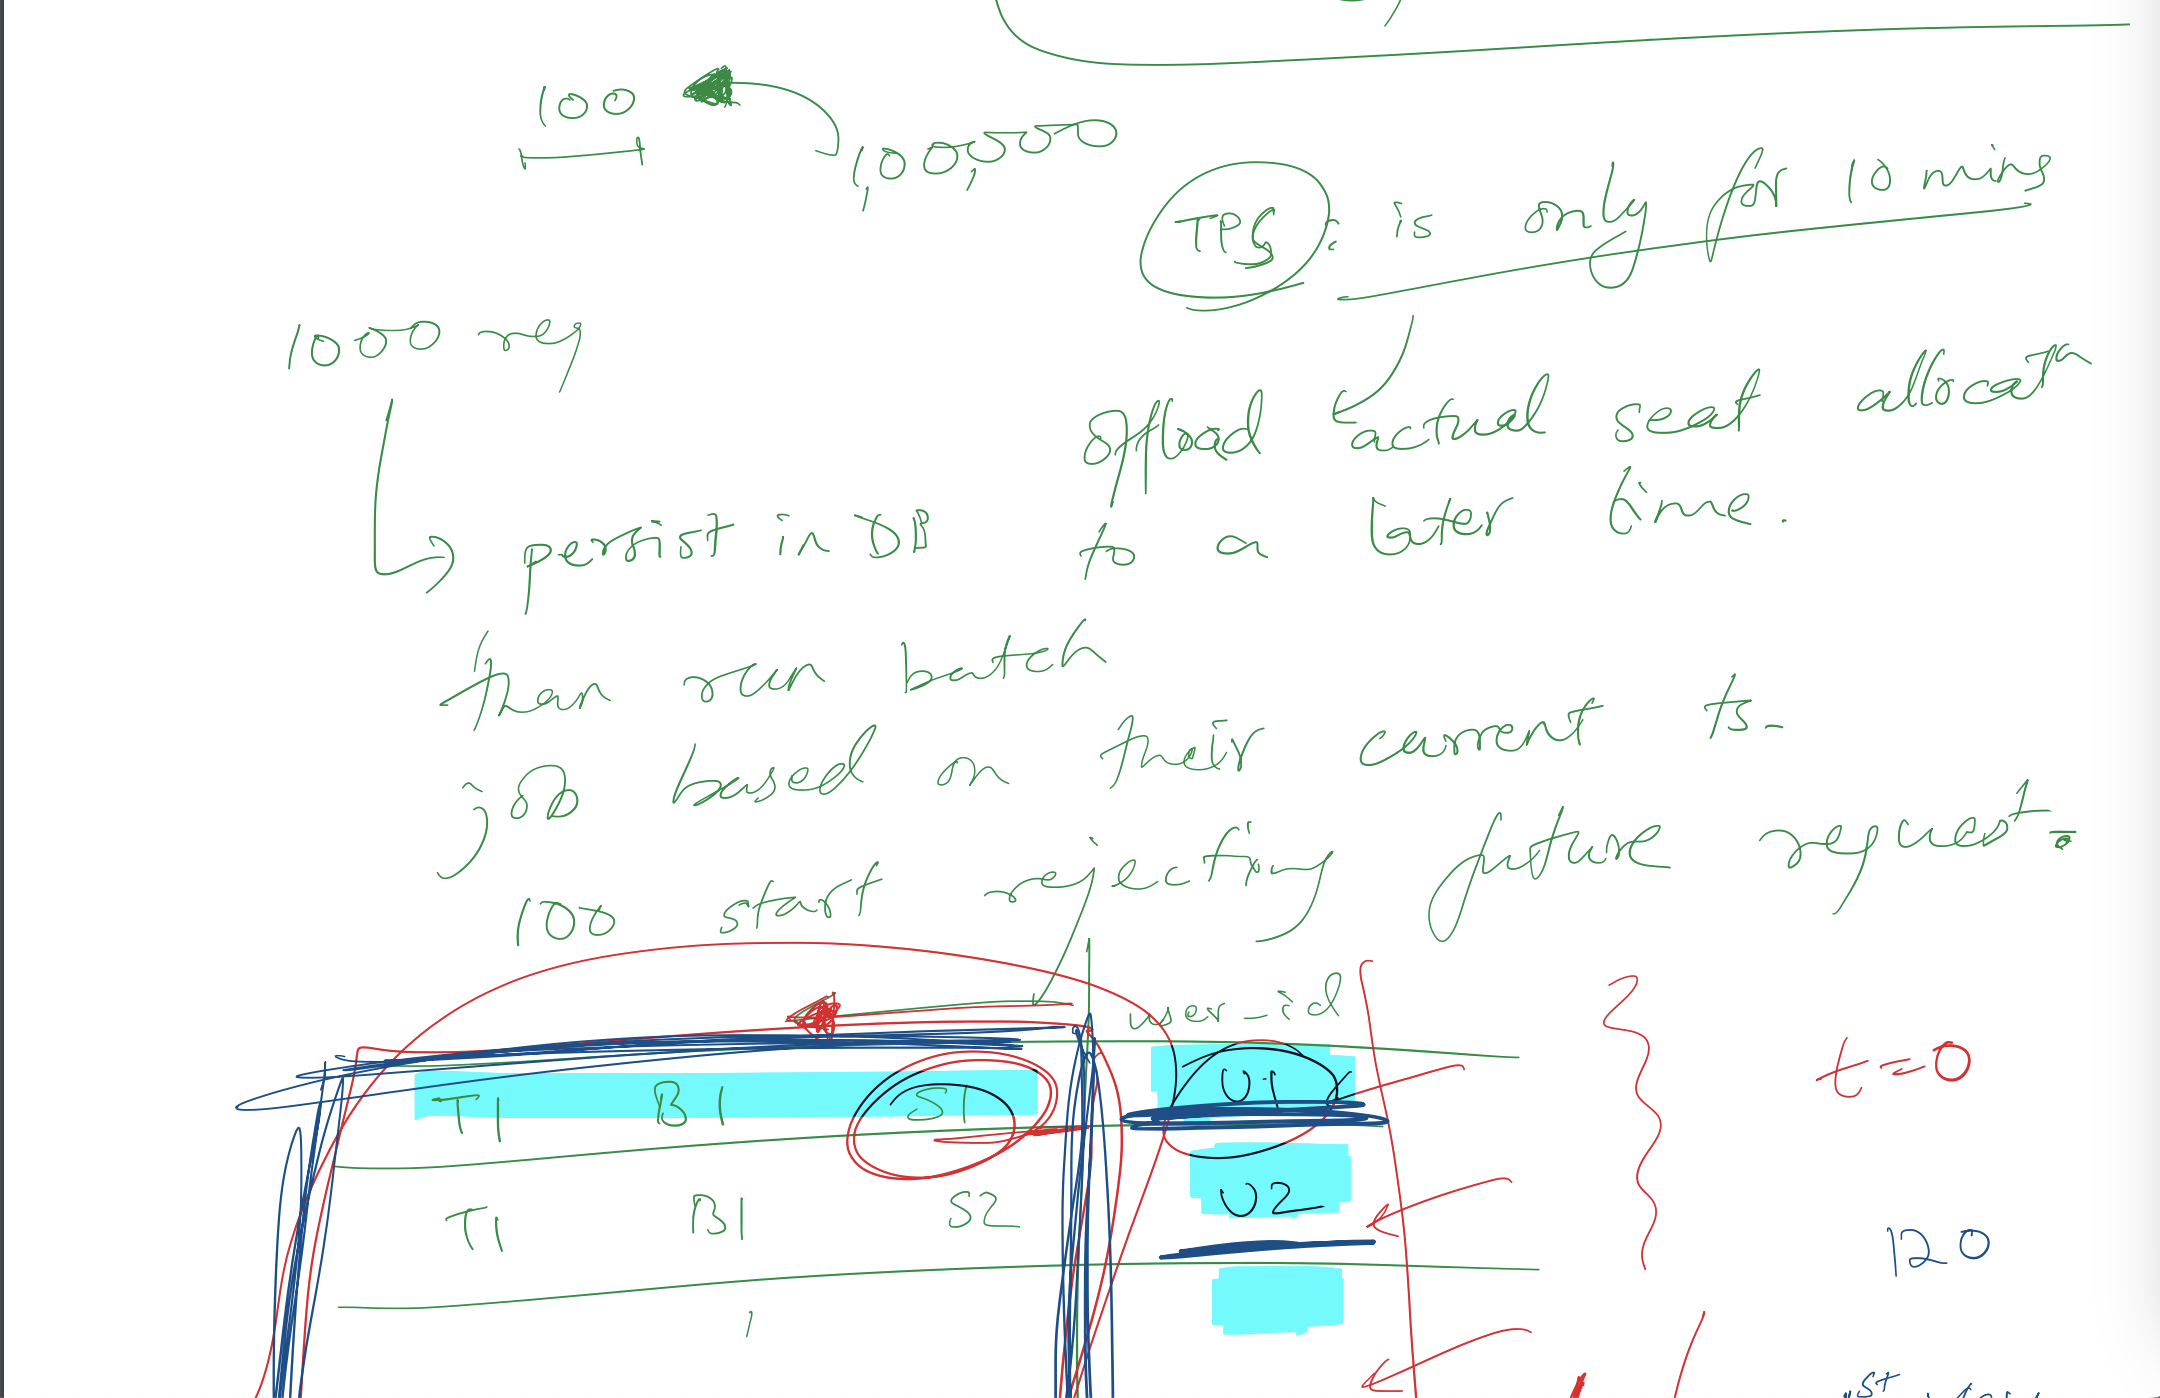 100
1,00,000
TPS : is only for 10 mins
1000 req
offload actual seat allocatn
to a later time.
persist in DB
than run batch
job based on their current ts-
100 start rejecting future request.
user_id
T1 B1 S1 U1
t=0
T1 B1 S2 U2
120